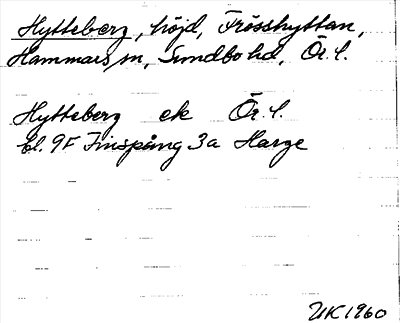 Hytteberg, höjd, Trösshyttan,
Hammars sn, Sundbo hd, Ör. l.
Hytteberg ek Ör. l.
bl. 9F Finspång 3a Harge
UK 1960